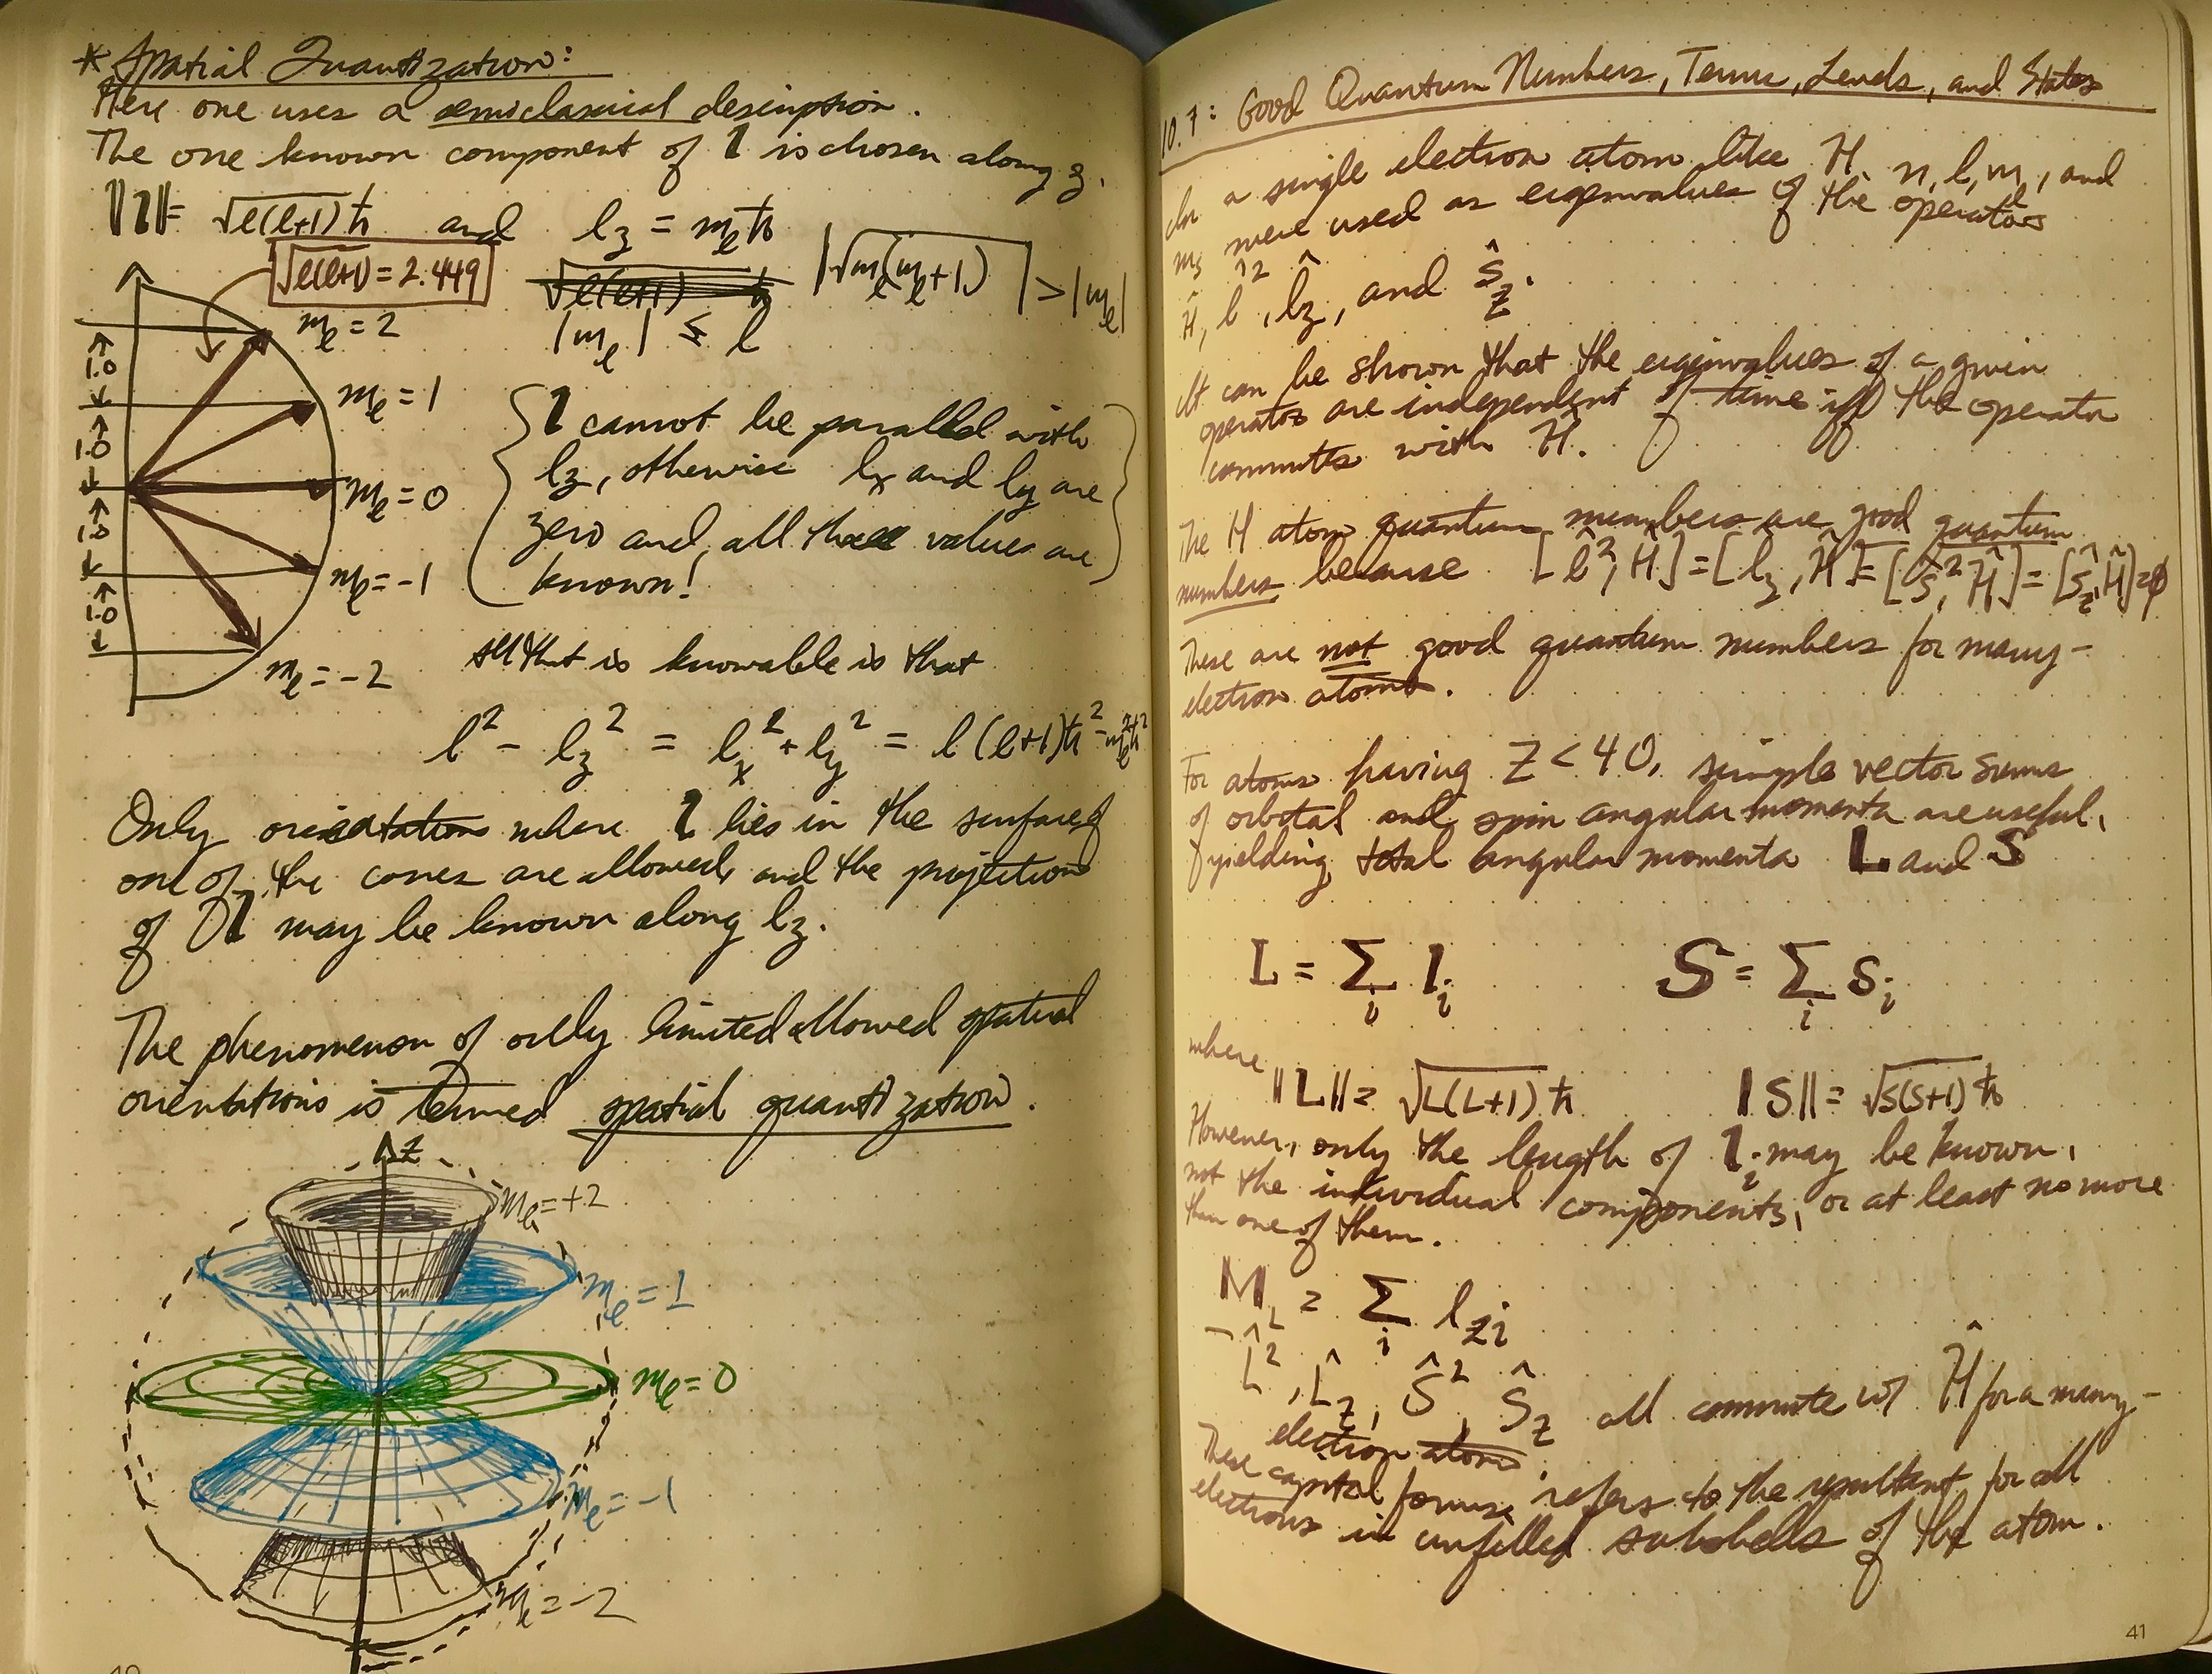 * Spatial Quantization:
Here one uses a semiclassical description.
The one known component of l is chosen along z.
‖l‖= √l(l+1) ħ and l_z = m_l ħ
√l(l+1) = 2.449
|√m_l(m_l+1)| > |m_l|
|m_l| ≤ l
m_l = 2
1.0
m_l = 1
1.0
m_l = 0
1.0
m_l = -1
1.0
m_l = -2
l cannot be parallel with
l_z, otherwise l_x and l_y are
zero and all three values are
known!
All that is knowable is that
l² - l_z² = l_x² + l_y² = l(l+1)ħ² - m_l²ħ²
Only orientations where l lies in the surface of
one of the cones are allowed, and the projection
of l may be known along l_z.
The phenomenon of only limited allowed spatial
orientations is termed spatial quantization.
z
m_l = +2
m_l = 1
m_l = 0
m_l = -1
m_l = -2
40
10.7: Good Quantum Numbers, Terms, Levels, and States
In a single electron atom like H, n, l, m_l, and
m_s were used as eigenvalues of the operators
Ĥ, l̂², l̂_z, and ŝ_z.
It can be shown that the eigenvalues of a given
operator are independent of time iff the operator
commutes with Ĥ.
The H atom quantum numbers are good quantum
numbers because [l̂², Ĥ] = [l̂_z, Ĥ] = [ŝ², Ĥ] = [ŝ_z, Ĥ] = 0
These are not good quantum numbers for many-
electron atoms.
For atoms having Z < 40, simple vector sums
of orbital and spin angular momenta are useful,
yielding total angular momenta L and S
L = Σ_i l_i S = Σ_i s_i
where
‖L‖ = √L(L+1) ħ ‖S‖ = √S(S+1) ħ
However, only the length of l_i may be known,
not the individual components, or at least no more
than one of them.
M_L = Σ_i l_zi
L̂², L̂_z, Ŝ², Ŝ_z all commute w/ Ĥ for a many-
electron atom.
These capital forms refers to the resultant for all
electrons in unfilled subshells of the atom.
41